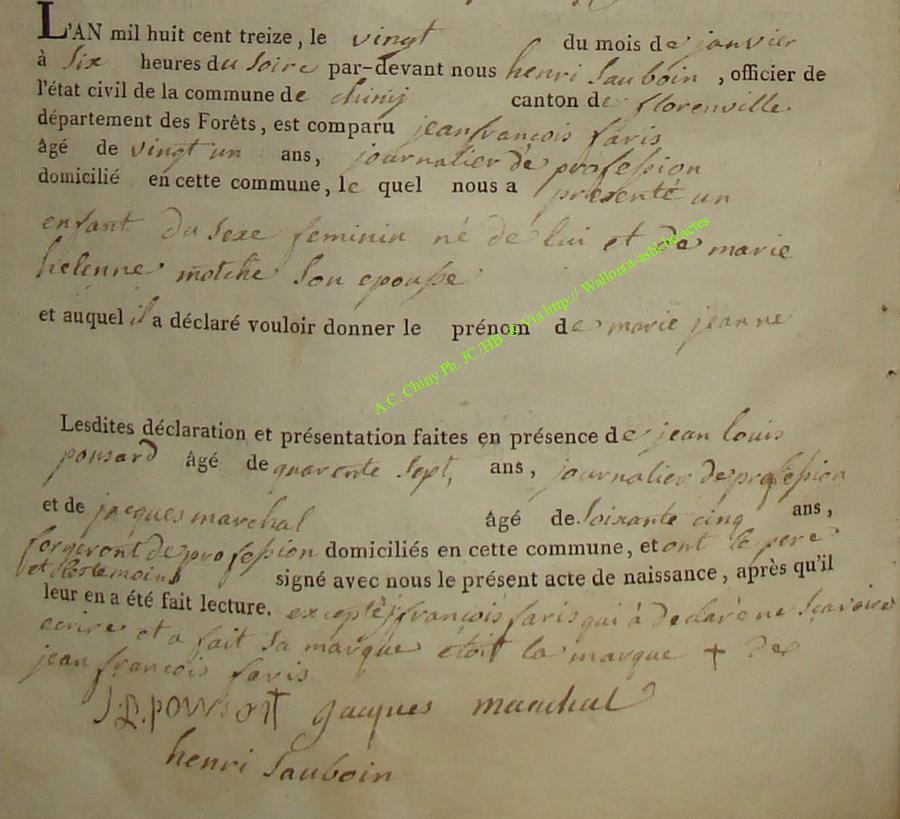 L'AN mil huit cent treize, le vingt du mois de janvier
à Six heures du Soire par-devant nous henri Sauboin, officier de
l'état civil de la commune de chiny canton de florenville.
département des Forêts, est comparu jean françois faris
âgé de vingt un ans, journalier de profession
domicilié en cette commune, le quel nous a présenté un
enfant du sexe feminin né de lui et de marie
helenne motché Son epouse
et auquel il a déclaré vouloir donner le prénom de marie jeanne
A.C. Chiny Ph. JC /HB © Via http:// Wallonia-asbl.be.actes
Lesdites déclaration et présentation faites en présence de jean louis
ponsard âgé de quarente Sept, ans, journalier de profession
et de jacques marchal âgé de Soixante cinq ans,
forgeront de profession domiciliés en cette commune, et ont le pere
et les temoins signé avec nous le présent acte de naissance, après qu'il
leur en a été fait lecture. excepté j françois faris qui à declaré ne Scavoire
ecrire et a fait sa marque étoit la marque + de
jean françois faris
jacques marchal
henri Sauboin